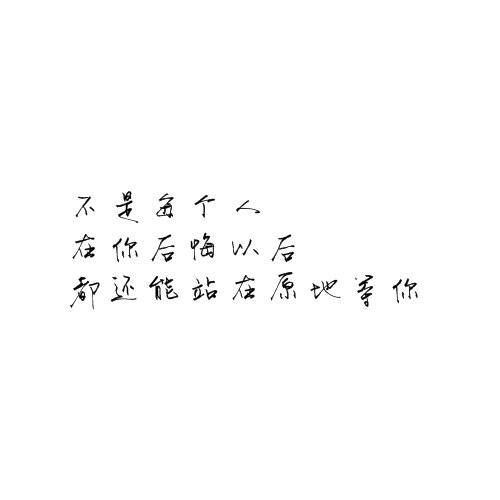 不是每个人
在你后悔以后
都还能站在原地等你